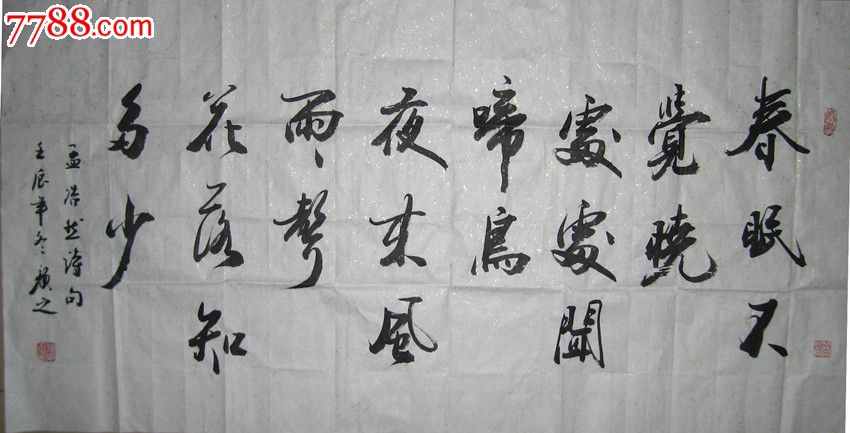 7788.com
春眠不
覺曉
處處聞
啼鳥
夜来風
雨聲
花落知
多少
孟浩然詩句
壬辰年冬廣之